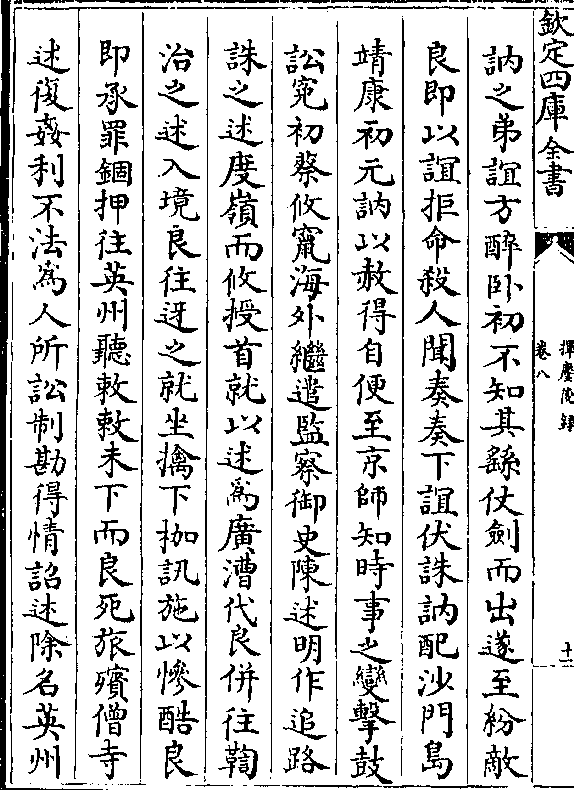 欽定四庫全書
揮麈後錄
卷八
十一
訥之弟誼方醉卧初不知其繇仗劍而出遂至紛敵
良即以誼拒命殺人聞奏奏下誼伏誅訥配沙門島
靖康初元訥以赦得自便至京師知時事之變擊鼓
訟寃初蔡攸竄海外繼遣監察御史陳述明作追路
誅之述度嶺而攸授首就以述為廣漕代良併往鞫
治之述入境良往迓之就坐擒下枷訊施以慘酷良
即承罪錮押往英州聽敕敕未下而良死旅殯僧寺
述復姦利不法為人所訟制勘得情詔述除名英州